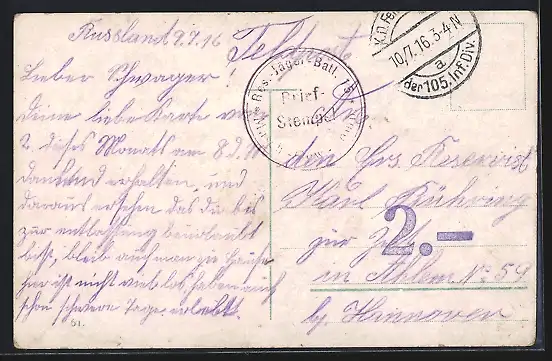 Russland 9.7.16
Feldpost
Lieber Schwager!
Deine liebe Karte vom
2. dieses Monats am 8.d.M.
dankend erhalten, und
daraus ersehen das du bis
zur entlassung beurlaubt
bist, bleib auch man zu Hause
hier ist nicht viel los, haben auch
schon schwere Tage erlebt.
51.
Res. Jäger Batl.
Brief-
Stempel
K.D. Fel
10.7.16. 3-4 N
a
der 105. Inf. Div.
An
den Ers. Reservist
Karl Bühring
zur Zeit
in Ahlem No 59
by. Hannover
2.–